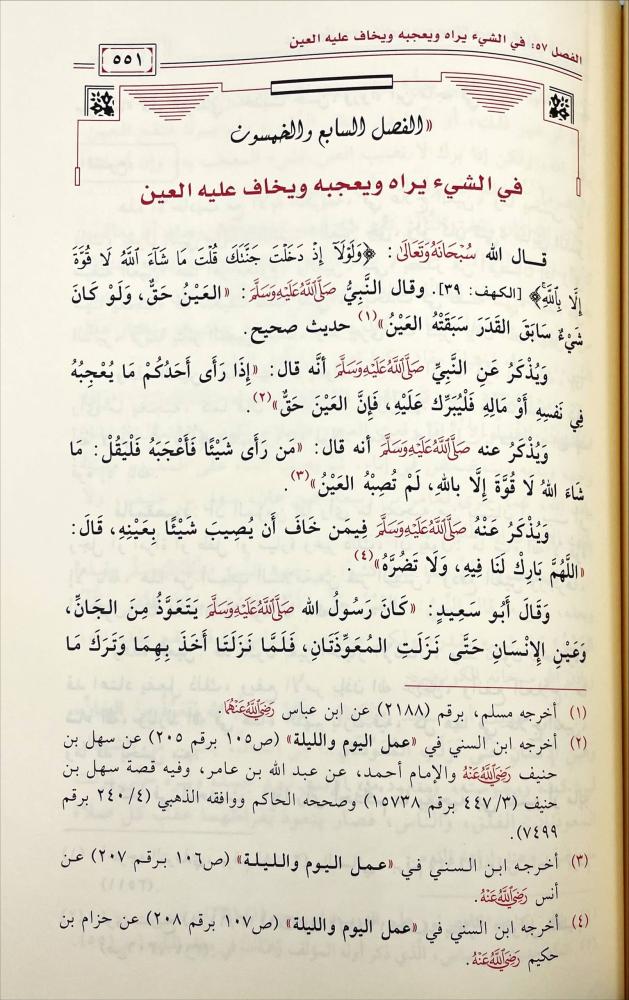 الفصل ٥٧: في الشيء يراه ويعجبه ويخاف عليه العين
٥٥١
«الفصل السابع والخمسون
في الشيء يراه ويعجبه ويخاف عليه العين
قال الله سُبْحَانَهُ وَتَعَالَىٰ: ﴿وَلَوْلَآ إِذْ دَخَلْتَ جَنَّتَكَ قُلْتَ مَا شَآءَ ٱللَّهُ لَا قُوَّةَ
إِلَّا بِٱللَّهِ﴾ [الكهف: ٣٩]. وقال النَّبِيُّ صَلَّى اللَّهُ عَلَيْهِ وَسَلَّمَ: «العَيْنُ حَقٌّ، وَلَوْ كَانَ
شَيْءٌ سَابَقَ القَدَرَ سَبَقَتْهُ العَيْنُ»(١) حديث صحيح.
وَيُذْكَرُ عَنِ النَّبِيِّ صَلَّى اللَّهُ عَلَيْهِ وَسَلَّمَ أنَّه قال: «إِذَا رَأَى أَحَدُكُمْ مَا يُعْجِبُهُ
فِي نَفسِهِ أَوْ مَالِهِ فَلْيُبَرِّك عَلَيْهِ، فَإِنَّ العَيْنَ حَقٌّ»(٢).
وَيُذْكَرُ عنه صَلَّى اللَّهُ عَلَيْهِ وَسَلَّمَ أنه قال: «مَن رَأَى شَيْئًا فَأَعْجَبَهُ فَلْيَقُلْ: مَا
شَاءَ اللهُ لَا قُوَّةَ إِلَّا بِاللهِ، لَمْ تُصِبْهُ العَيْنُ»(٣).
وَيُذْكَرُ عَنْهُ صَلَّى اللَّهُ عَلَيْهِ وَسَلَّمَ فِيمَن خَافَ أَن يُصِيبَ شَيْئًا بِعَيْنِهِ، قَالَ:
«اللَّهُمَّ بَارِكْ لَنَا فِيهِ، وَلَا تَضُرَّهُ»(٤).
وَقَالَ أَبُو سَعِيدٍ: «كَانَ رَسُولُ الله صَلَّى اللَّهُ عَلَيْهِ وَسَلَّمَ يَتَعَوَّذُ مِنَ الجَانِّ،
وَعَيْنِ الإِنْسَانِ حَتَّى نَزَلَتِ المُعَوِّذَتَانِ، فَلَمَّا نَزَلَتَا أَخَذَ بِهِمَا وَتَرَكَ مَا
(١) أخرجه مسلم، برقم (٢١٨٨) عن ابن عباس رَضِيَ اللَّهُ عَنْهُمَا.
(٢) أخرجه ابن السني في «عمل اليوم والليلة» (ص١٠٥ برقم ٢٠٥) عن سهل بن
حنيف رَضِيَ اللَّهُ عَنْهُ والإمام أحمد، عن عبد الله بن عامر، وفيه قصة سهل بن
حنيف (٤٤٧/٣ برقم ١٥٧٣٨) وصححه الحاكم ووافقه الذهبي (٢٤٠/٤ برقم
٧٤٩٩).
(٣) أخرجه ابن السني في «عمل اليوم والليلة» (ص١٠٦ برقم ٢٠٧) عن
أنس رَضِيَ اللَّهُ عَنْهُ.
(٤) أخرجه ابن السني في «عمل اليوم والليلة» (ص١٠٧ برقم ٢٠٨) عن حزام بن
حكيم رَضِيَ اللَّهُ عَنْهُ.